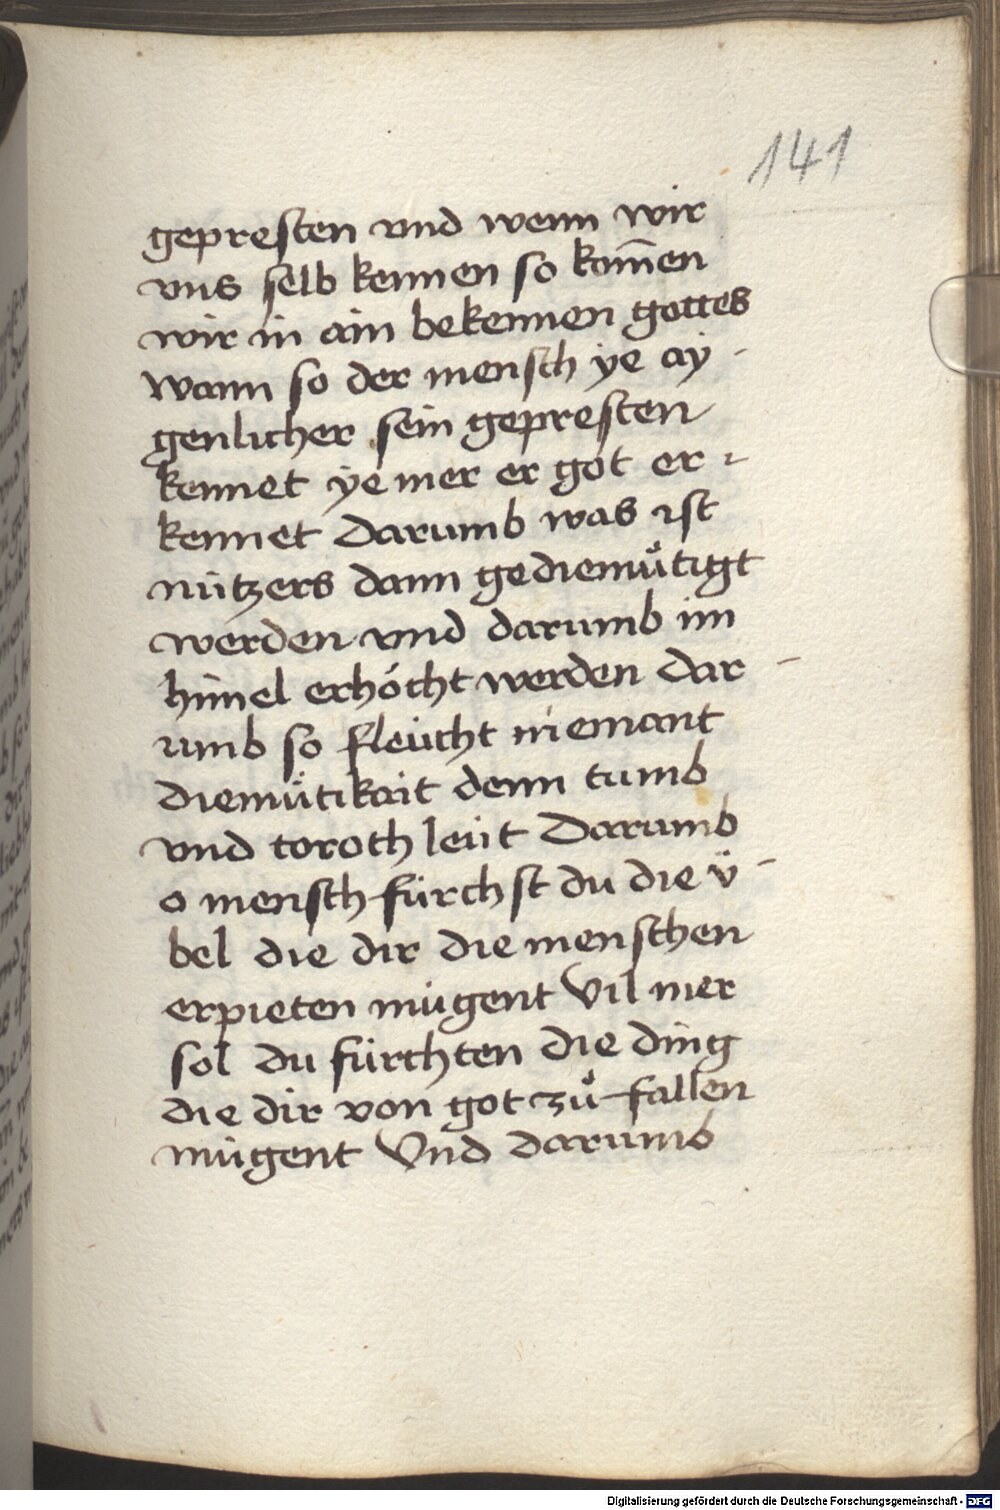 141
gepresten vnd wenn wir
vns selb kennen so kom̄en
wir in ain bekennen gottes
wann so der mensch ÿe aÿ-
genlicher sein gepresten
kennet ÿe mer er got er-
kennet Darumb was ist
nützers dann gediemuͤtigt
werden vnd darumb im
himel erhöcht werden Dar-
umb so fleücht niemant
diemuͤtikait denn tumb
vnd toroth leüt Darumb
o mensch fürchst du die v̈-
bel die dir die menschen
erpieten mügent Vil mer
sol du fürchten die ding
die dir von got zuͦ fallen
mügent Vnd darumb
Digitalisierung gefördert durch die Deutsche Forschungsgemeinschaft - DFG